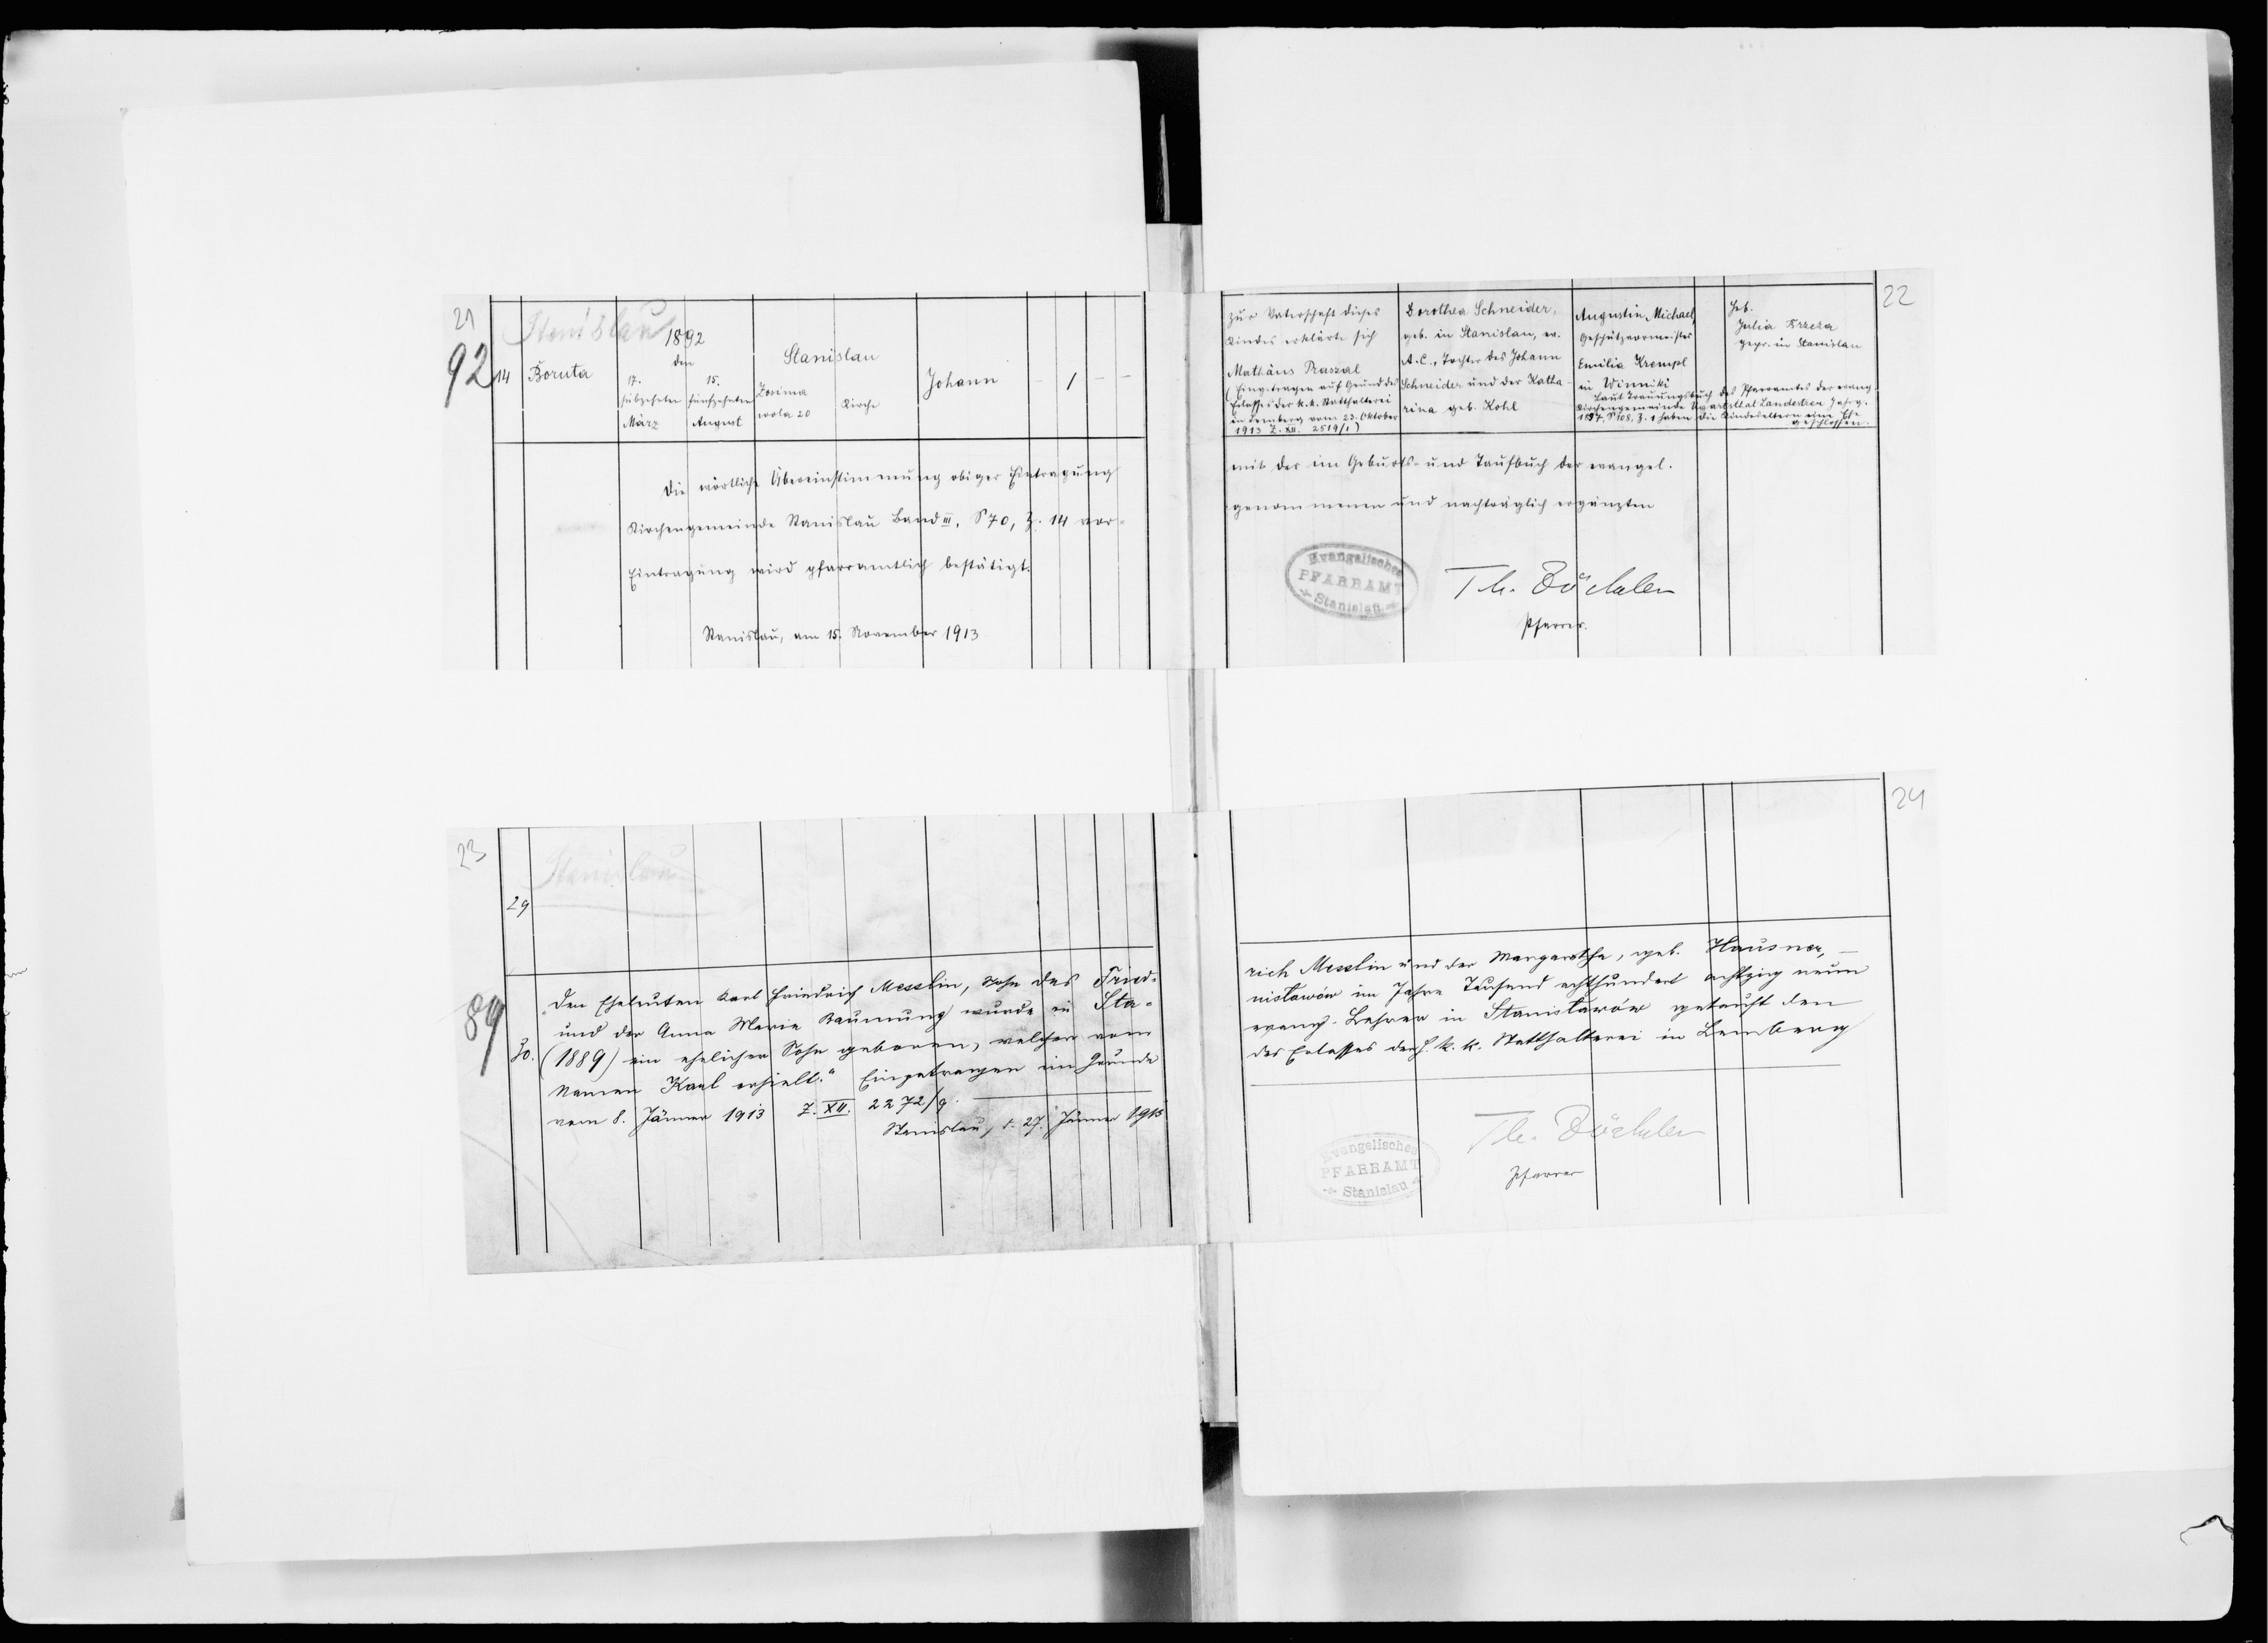 21
Stanislau
92
14
Boruta
1892
den
17.
siebzehnten
März
15.
fünfzehnten
August
Stanislau
Zosina
wola 20
Kirche
Johann
- 1 - -
Die wörtliche Übereinstimmung obiger Eintragung
Kirchengemeinde Stanislau Band III. S 70, Z. 14 vor-
Eintragung wird pfarramtlich bestätigt.
Stanislau, am 15. November 1913
22
zur Vaterschaft dieses
Kindes erklärte sich
Mathäus
(Eingetragen auf Grund des
Erlasses der k. k. Statthalterei
in Lemberg vom 23. Oktober
1913 Z. XII. 2519/1)
Dorothea Schneider,
geb. in Stanislau, ev.
A. C., Tochter des Johann
Schneider und der Katha-
rina geb. Kohl
Augustin Michael,
Geschützvormeister
Emilia Krempl
in Winniki
Laut Trauungsbuch des Pfarramtes der evang.
Kirchengemeinde Ugartsttal Landestreu Jahrg.
1897, S 108, Z. 1 haben die Kindeseltern eine Ehe
geschlossen.
Heb.
Julia
gepr. in Stanislau
mit der im Geburts- und Taufbuch der evangel.
genommenen und nachträglich ergänzten
Evangelisches
PFARRAMT
Stanislau
Th. Zöckler
Pfarrer.
23
Stanislau
29
89
30.
"Den Eheleuten Karl Friedrich Messlin, Sohn des Fried-
und der Anna Maria Baumung wurde in Sta-
(1889) ein ehelicher Sohn geboren, welcher vom
Namen Karl erhielt." Eingetragen im Grunde
vom 8. Jänner 1913 Z. XII. 2272/9.
Stanislau, d. 27. Jänner 1913
24
rich Messlin und der Margaretha, geb. Hausner, –
nisławów im Jahre Tausend achthundert achtzig neun
evang. Lehrer in Stanislawów getauft den
des Erlasses der h. k. k. Statthalterei in Lemberg
Evangelisches
PFARRAMT
Stanislau
Th. Zöckler
Pfarrer